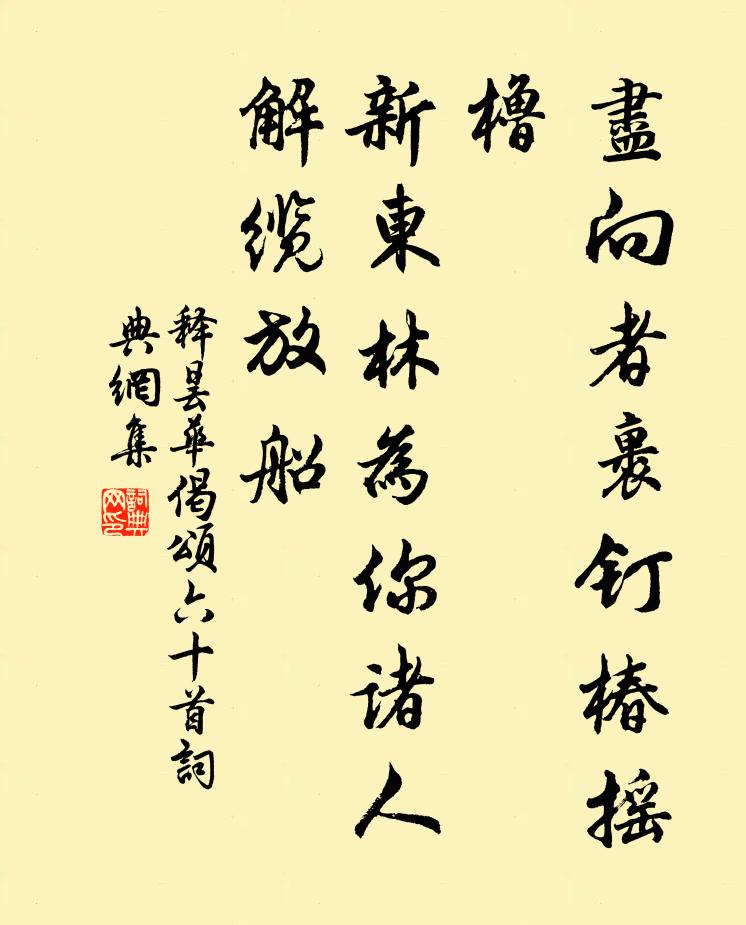 盡向者裹釘椿摇
櫓
新東林為你諸人
解纜放船
释昙華偈頌六十首詞
典網集
詞典
网印